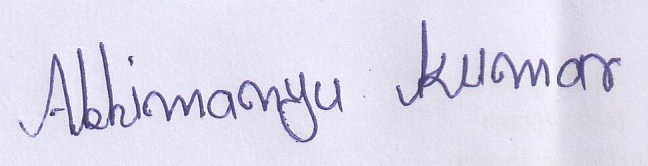 Abhimanyu kumar